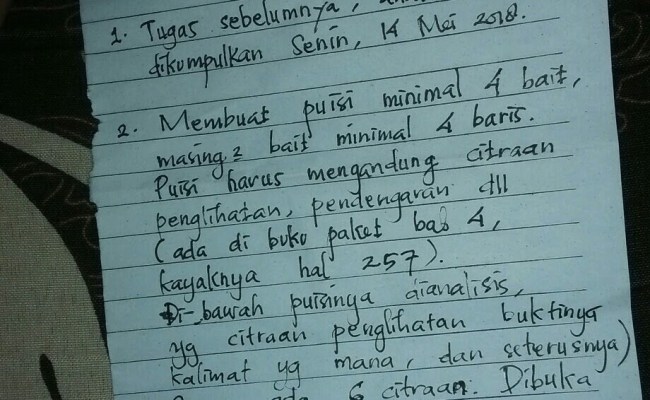 1. Tugas sebelumnya,
dikumpulkan Senin, 14 Mei 2018.
2. Membuat puisi minimal 4 bait,
masing2 bait minimal 4 baris.
Puisi harus mengandung citraan
penglihatan, pendengaran dll
(ada di buku paket bab 4,
kayaknya hal 257).
Di-bawah puisinya dianalisis,
yg citraan penglihatan buktinya
kalimat yg mana, dan seterusnya)
6 citraan. Dibuka